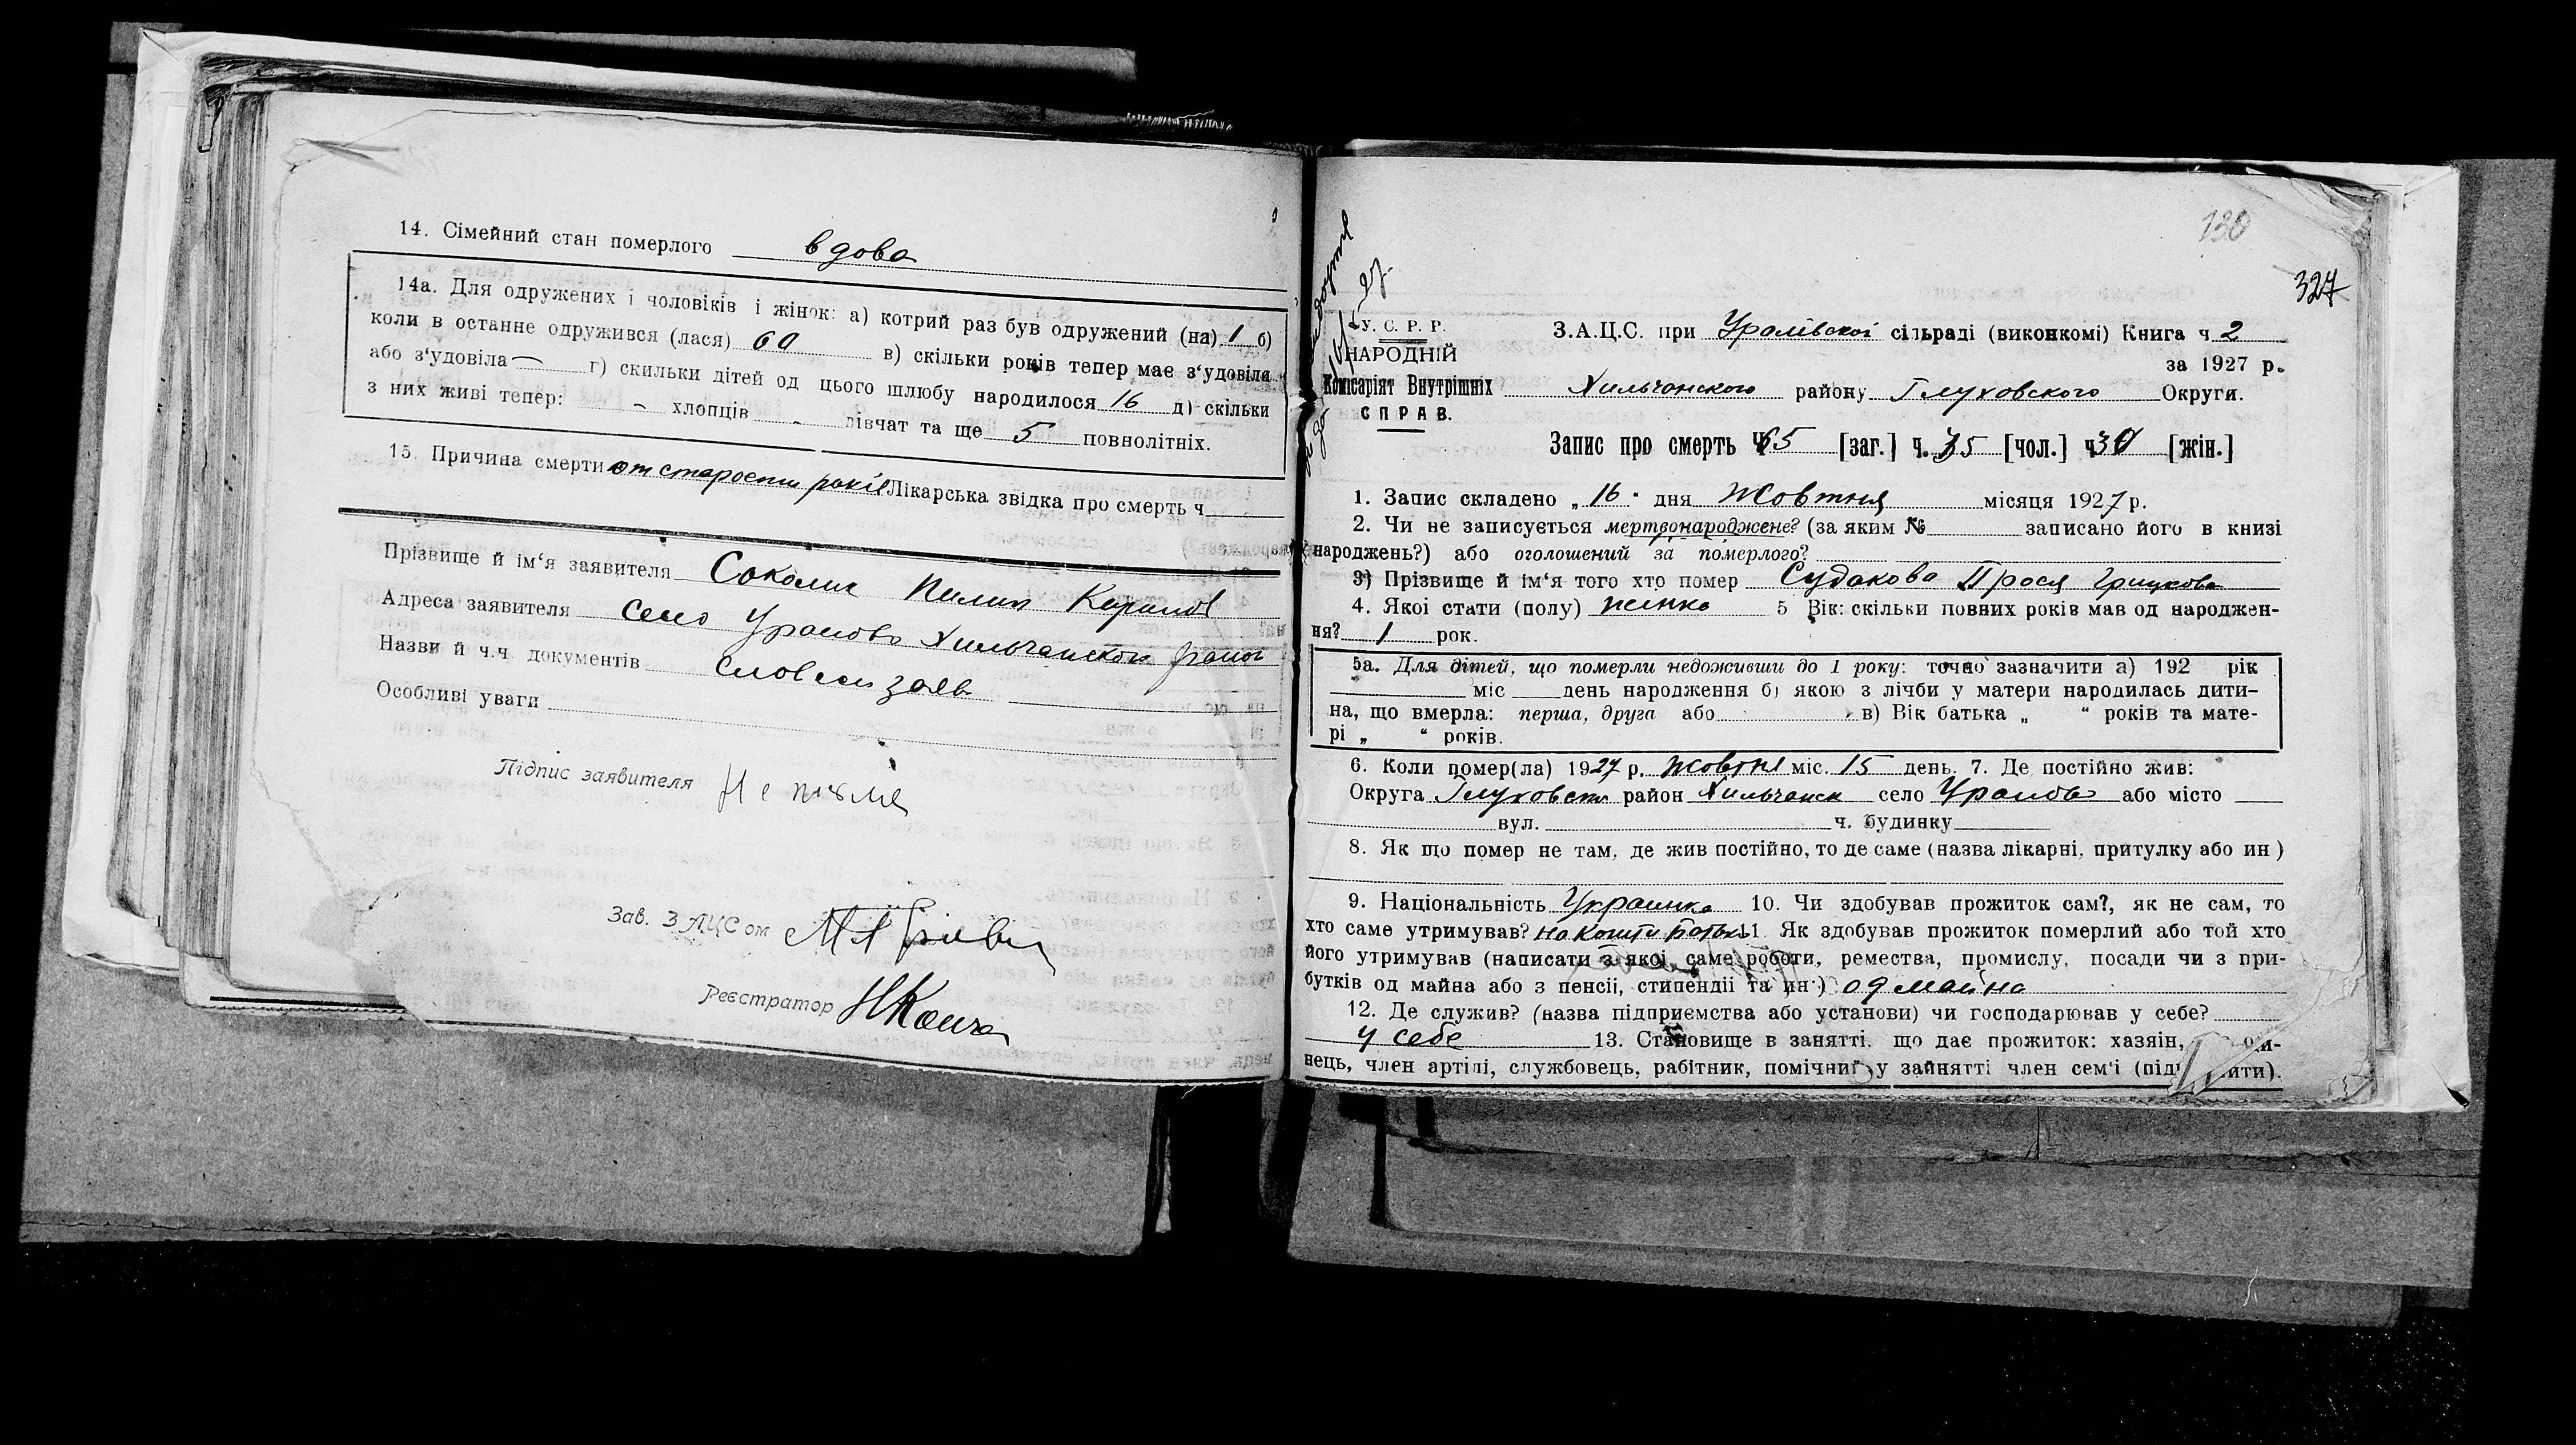 14. Сімейний стан померлого вдова
14а. Для одружених і чоловіків і жінок: а) котрий раз був одружений (на) 1 б)
коли в останне одружився (лася) 60 в) скільки років тепер має з'удовіля
або з'удовіла — г) скильки дітей од цього шлюбу народилося 16 д) скільки
з них живі тепер: - хлопців - дівчат та ще 5 повнолітніх.
15. Причина смерти от старости років Лікарська звідка про смерть ч
Прізвище й ім'я заявителя Соколик Пилип
Адреса заявителя село Уралово Хильчанского району
Назви й ч.ч. документів словесн заяв
Особливі уваги
Підпис заявителя Не письме
Зав. ЗАЦСом
Реєстратор
130
327
У. С. Р. Р.
НАРОДНІЙ
Комісаріят Внутрішніх
СПРАВ.
З.А.Ц.С. при Уралівской сільраді (виконкомі) Книга ч 2
за 1927 р.
Хильчанского району Глуховского Округи.
Запис про смерть Ч 65 [заг.] ч. 35 [чол.] ч 30 [жін.]
1. Запис складено „16" дня Жовтня місяця 1927 р.
2. Чи не записується мертвонароджене? (за яким № записано його в книзі
народжень?) або оголошений за померлого?
3) Прізвище й ім'я того хто помер Судакова Прося Грицкова
4. Якої стати (полу) жінка 5 Вік: скільки повних років мав од народжен-
ня? 1 рок.
5а. Для дітей, що померли недоживши до 1 року: точно зазначити а) 192 рік
міс день народження б) якою з лічби у матери народилась дити-
на, що вмерла: перша, друга або в) Вік батька „ " років та мате-
рі „ " років.
6. Коли помер(ла) 1927 р. Жовтня міс. 15 день. 7. Де постійно жив:
Округа Глуховск район Хильчанск село Уралово або місто
вул. ч. будинку
8. Як що помер не там, де жив постійно, то де саме (назва лікарні, притулку або ин)
9. Національність Украинка 10. Чи здобував прожиток сам?, як не сам, то
хто саме утримував? на кошти батька 11. Як здобував прожиток померлий або той хто
його утримував (написати з якої саме роботи, ремества, промислу, посади чи з при-
бутків од майна або з пенсії, стипендії та ин.) од майна
12. Де служив? (назва підприємства або установи) чи господарював у себе?
у себе 13. Становище в занятті, що дає прожиток: хазяін,
нець, член артілі, службовець, рабітник, помічний у зайнятті член сем'ї